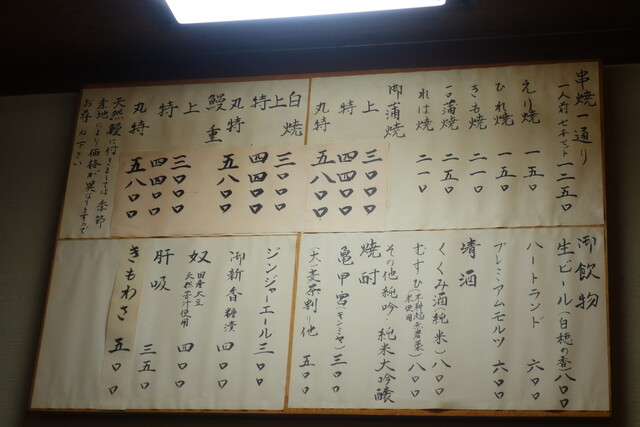 串焼一通り
一人前 七本セット 一二五〇
えり焼 一五〇
ひれ焼 一五〇
きも焼 二一〇
一口蒲焼 二五〇
れば焼 二一〇
御蒲焼
上 三〇〇〇
特 四四〇〇
丸特 五八〇〇
白焼
上 三〇〇〇
特 四四〇〇
丸特 五八〇〇
鰻重
上 三〇〇〇
特 四四〇〇
丸特 五八〇〇
天然鰻に付きましては季節
産地により価格が異なりますので
お尋ね下さい
御飲物
生ビール(白穂乃香)八〇〇
ハートランド 六〇〇
プレミアムモルツ 六〇〇
清酒
くくみ酒(純米)八〇〇
むすひ 八〇〇
その他純吟・純米大吟醸
焼酎
亀甲宮(キンミヤ)三〇〇
(大麦茶割・他 五〇〇
ジンジャーエール 三〇〇
御新香糠漬 四〇〇
奴 国産大豆
天然苦汁使用 四〇〇
肝吸 三五〇
きもわさ 五〇〇